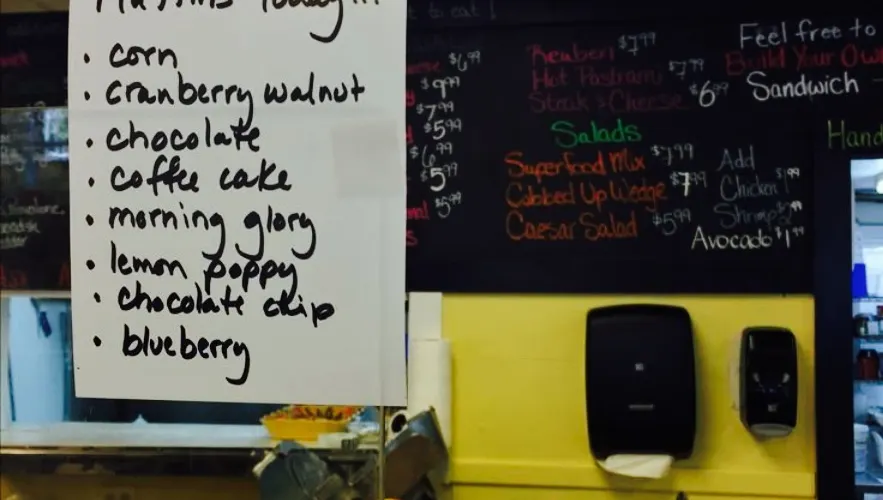 Muffins Today!!!
• corn
• cranberry walnut
• chocolate
• coffee cake
• morning glory
• lemon poppy
• chocolate chip
• blueberry
to eat!
$6.99
$9.99
$7.99
$5.99
$6.99
$5.99
$5.99
Reuben $7.99
Hot Pastrami $7.99
Steak & Cheese $6.99
Salads
Superfood Mix $7.99
Cobbed Up Wedge $7.99
Caesar Salad $5.99
Add
Chicken 1.99
Shrimp
Avocado $1.99
Feel free to
Build Your Own
Sandwich -
Hand